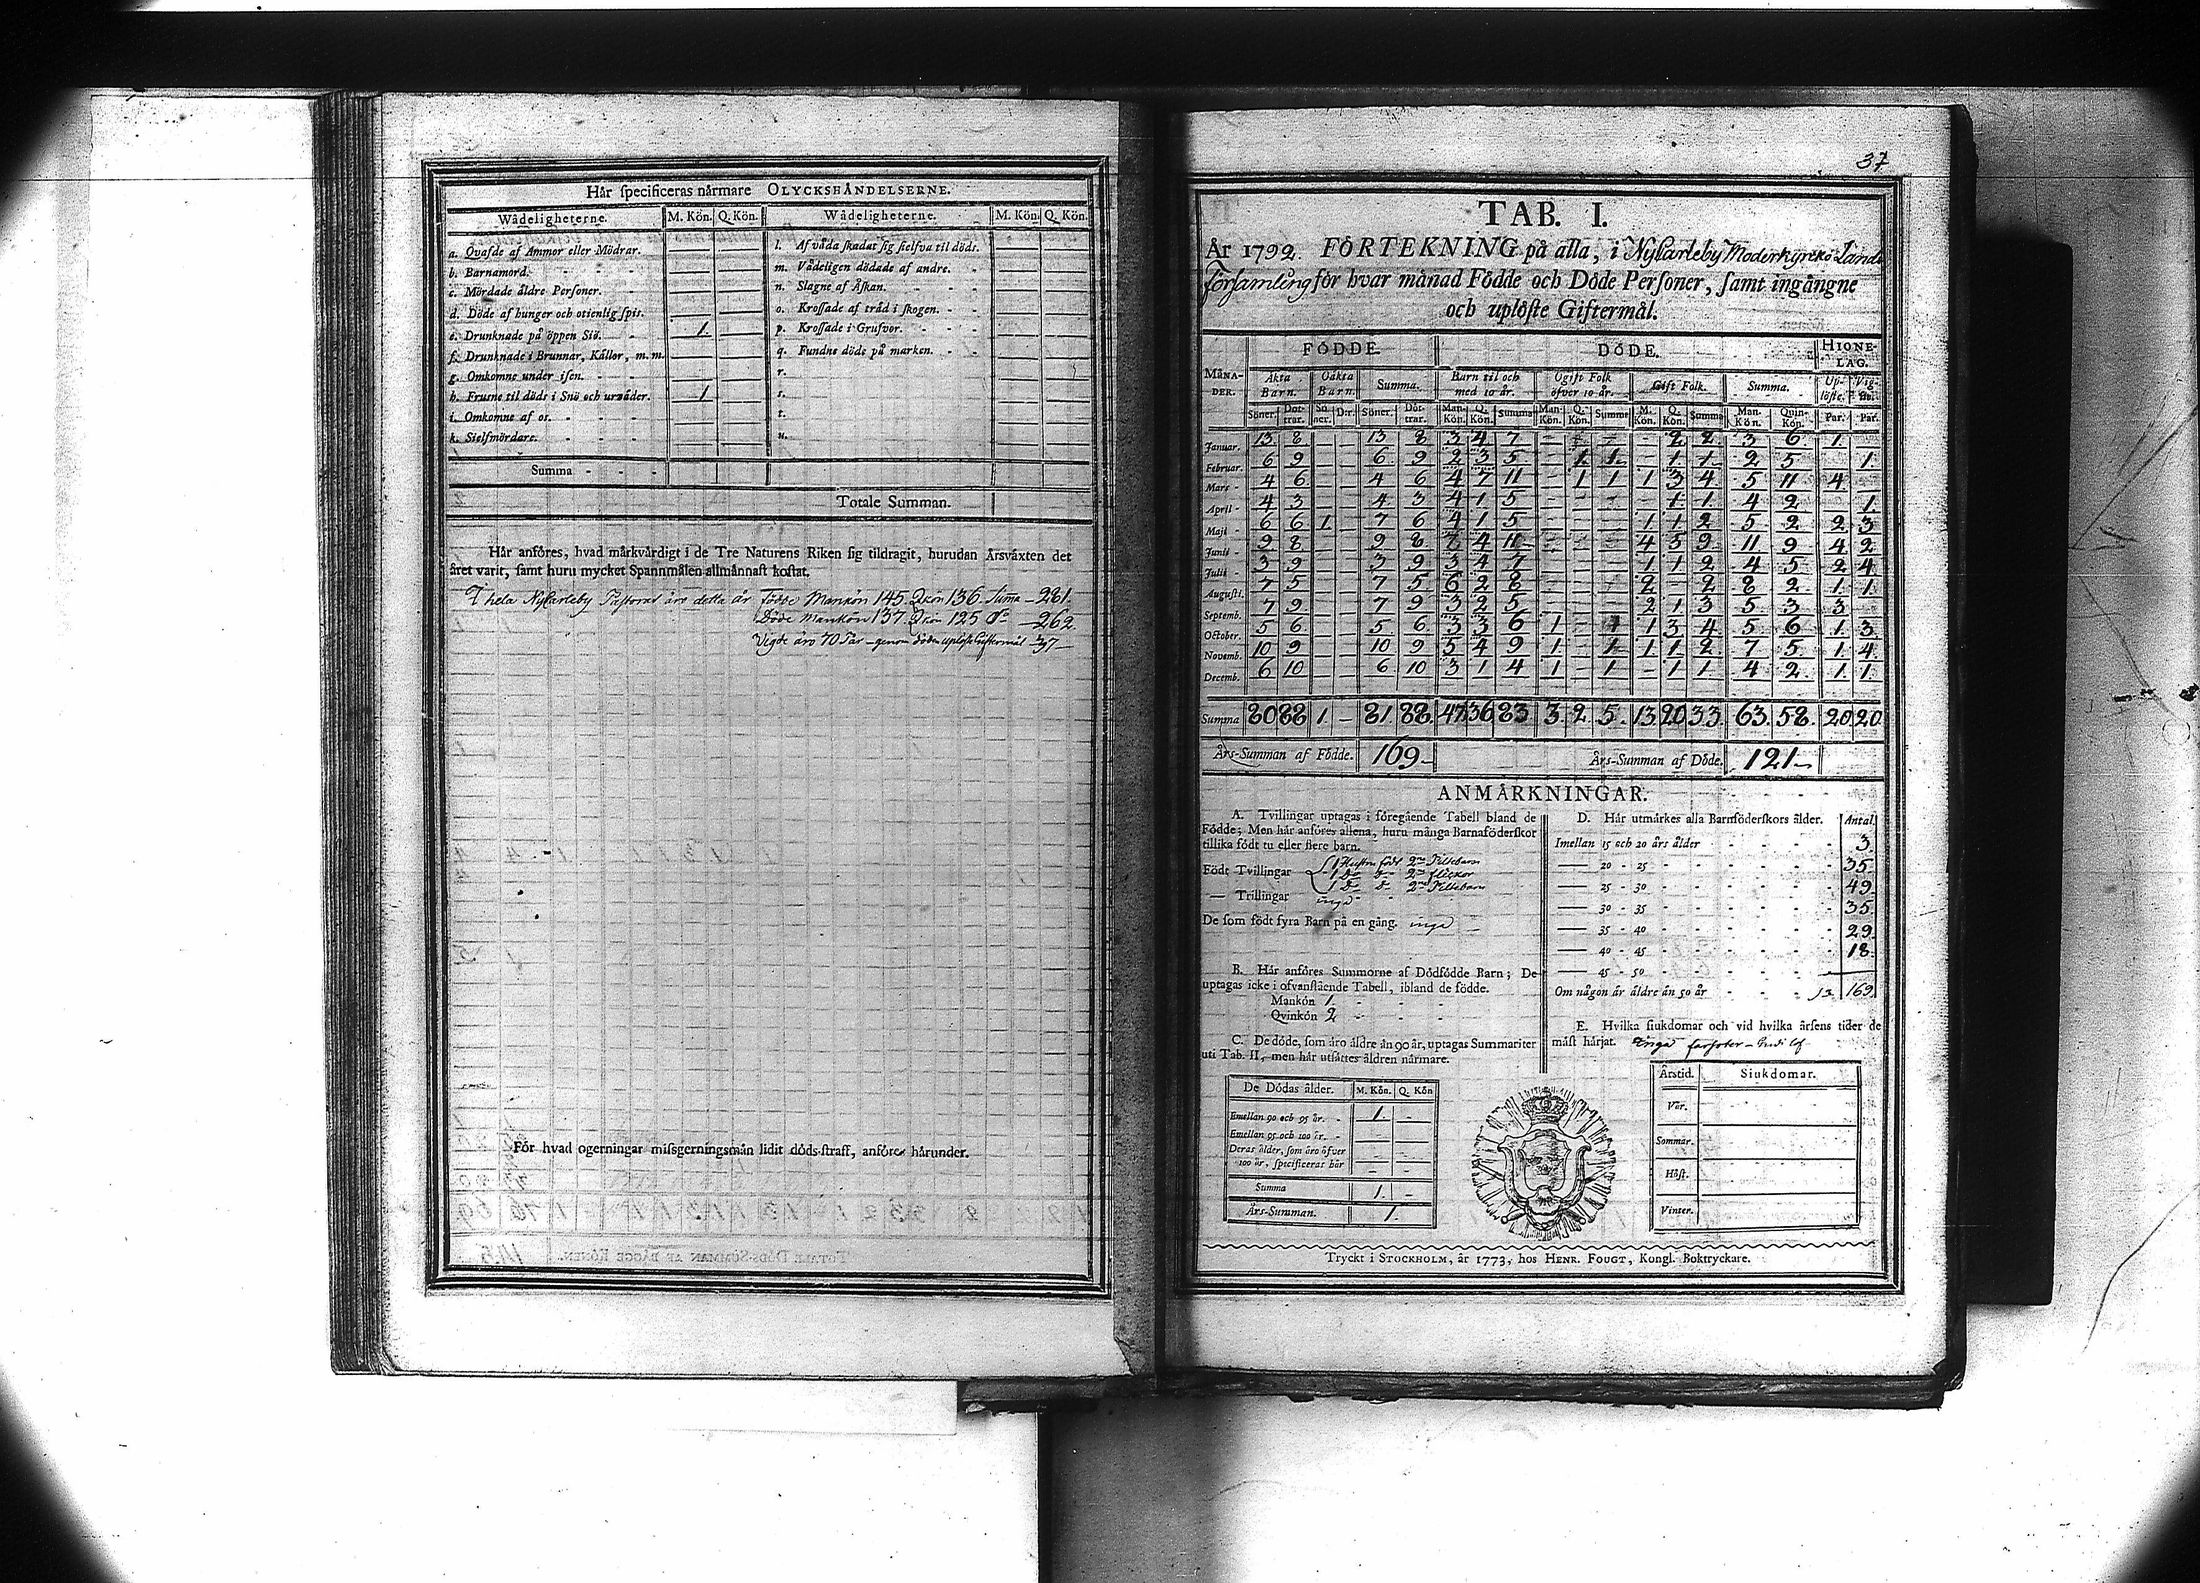 Här specificeras närmare OLYCKSHÄNDELSERNE.
Wådeligheterne. M. Kön. Q. Kön. Wådeligheterne. M. Kön. Q. Kön.
a. Qvafde af Ammor eller Mödrar. l. Af våda skadat sig sielfva til döds.
b. Barnamord. m. Vådeligen dödade af andre.
c. Mördade äldre Personer. n. Slagne af Åskan.
d. Döde af hunger och otienlig spis. o. Krossade af träd i skogen.
e. Drunknade på öppen Siö. 1 p. Krossade i Grufvor.
f. Drunknade i Brunnar, Källor, m. m. q. Fundne döde på marken.
g. Omkomne under isen. r.
h. Frusne til döds i Snö och urväder. 1 s.
i. Omkomne af os. t.
k. Sielfmördare. u.
Summa
Totale Summan.
Här anföres, hvad märkvärdigt i de Tre Naturens Riken sig tildragit, hurudan Årsväxten det
året varit, samt huru mycket Spannmålen allmännast kostat.
I hela NyCarleby Pastorat äro detta år födde Mankön 145 Qkön 136 Suma - 281.
Döde Mankön 137. Qkön 125 - 262.
Vigde äro 70 Par - genom döden uplöste Giftermål 37 -
För hvad ogerningar missgerningsmän lidit döds-straff, anföres härunder.
37
TAB. I.
År 1792. FÖRTEKNING på alla, i NyCarleby Moderkyrko Lands
Församling för hvar månad Födde och Döde Personer, samt ingångne
och uplöste Giftermål.
FÖDDE. DÖDE. HIONE-
LAG.
MÅNA-
DER. Äkta
Barn. Oäkta
Barn. Summa. Barn til och
med 10 år. Ogift Folk
öfver 10 år. Gift Folk. Summa. Up-
löste. Vig-
de.
Söner. Döt-
trar. Sö
ner. D:r. Söner. Döt-
trar. Man-
Kön. Q.
Kön. Summa Man-
Kön. Q.
Kön. Summa M.
Kön. Q.
Kön. Summa Man-
Kön. Quin-
Kön. Par. Par.
Januar. 13 8 - - 13 8 3 4 7 - - - - 2 2 3 6 1
Februar. 6 9 - - 6 9 2 3 5 - 1 1 - 1 1 2 5 1.
Mars - 4 6 - - 4 6 4 7 11 - 1 1 1 3 4 5 11 4
April - 4 3 - - 4 3 4 1 5 - - - - 1 1 4 2 1.
Maji - 6 6 1 - 7 6 4 1 5 - - - 1 1 2 5 2 2 3
Junii - 9 8 - - 9 8 7 4 11 - - - 4 5 9 11 9 4 2
Julii - 3 9 - - 3 9 3 4 7 - - - 1 1 2 4 5 2 4
Augusti. 7 5 - - 7 5 6 2 8 - - - 2 - 2 8 2 1. 1.
Septemb. 7 9 - - 7 9 3 2 5 - - - 2 1 3 5 3 3
October. 5 6 - - 5 6 3 3 6 1 - 1 1 3 4 5 6 1. 3.
Novemb. 10 9 - - 10 9 5 4 9 1 - 1 1 1 2 7 5 1. 4.
Decemb. 6 10 - - 6 10 3 1 4 1 - 1 - 1 1 4 2 1. 1.
Summa 80 88 1. - 81 88. 47. 36 83 3. 2. 5. 13. 20 33. 63. 58. 20. 20.
Års-Summan af Födde. 169. Års-Summan af Döde. 121
ANMÄRKNINGAR.
A. Tvillingar uptagas i föregående Tabell bland de
Födde; Men här anföres allena, huru många Barnaföderskor
tillika födt tu eller flere barn.
Födt Tvillingar 1 Hustru födt 2ne Pillebarn
1 do do 2ne flickor
1 do do 2ne Pillebarn
— Trillingar inga
De som födt fyra Barn på en gång. inga
B. Här anföres Summorne af Dödfödde Barn; De
uptagas icke i ofvanstående Tabell, ibland de födde.
Mankön 1.
Qvinkön 2
C. De döde, som äro äldre än 90 år, uptagas Summariter
uti Tab. II, men här utsättes åldren närmare.
De Dödas ålder. M. Kön. Q. Kön
Emellan 90 och 95 år. 1. -
Emellan 95 och 100 år. - -
Deras ålder, som äro öfver
100 år, specificeras här - -
Summa 1. -
Års-Summan. 1.
D. Här utmärkes alla Barnföderskors ålder. Antal.
Imellan 15 och 20 års ålder 3.
— 20 - 25 35.
— 25 - 30 49.
— 30 - 35 35.
— 35 - 40 29.
— 40 - 45 18.
— 45 - 50
Om någon är äldre än 50 år 169
E. Hvilka siukdomar och vid hvilka årsens tider de
mäst härjat. Inga farsoter
Årstid. Siukdomar.
Vår.
Sommar.
Höst.
Vinter.
Tryckt i STOCKHOLM, år 1773, hos HENR. FOUGT, Kongl. Boktryckare.